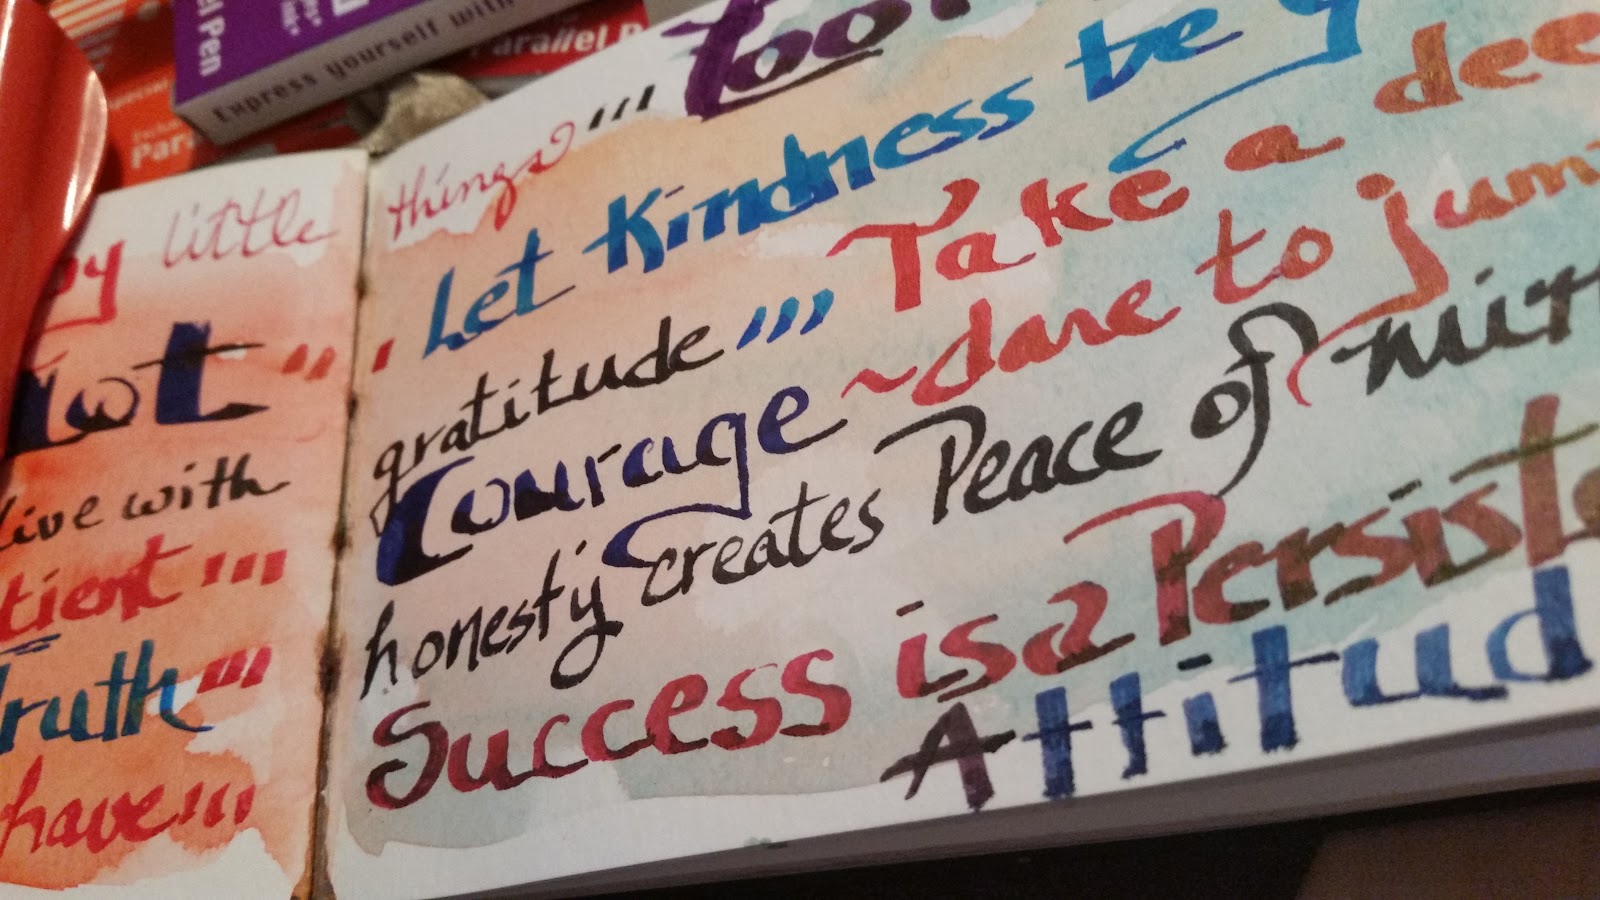 el Pen
Express yourself with
Parallel P
Para
little
things ,,,
Let Kindness be
gratitude ,,, Take a dee
Courage ~ dare to jum
honesty creates Peace of
Success is a Persist
Attitud
live with
tient ,,,
truth ,,,
have ,,,